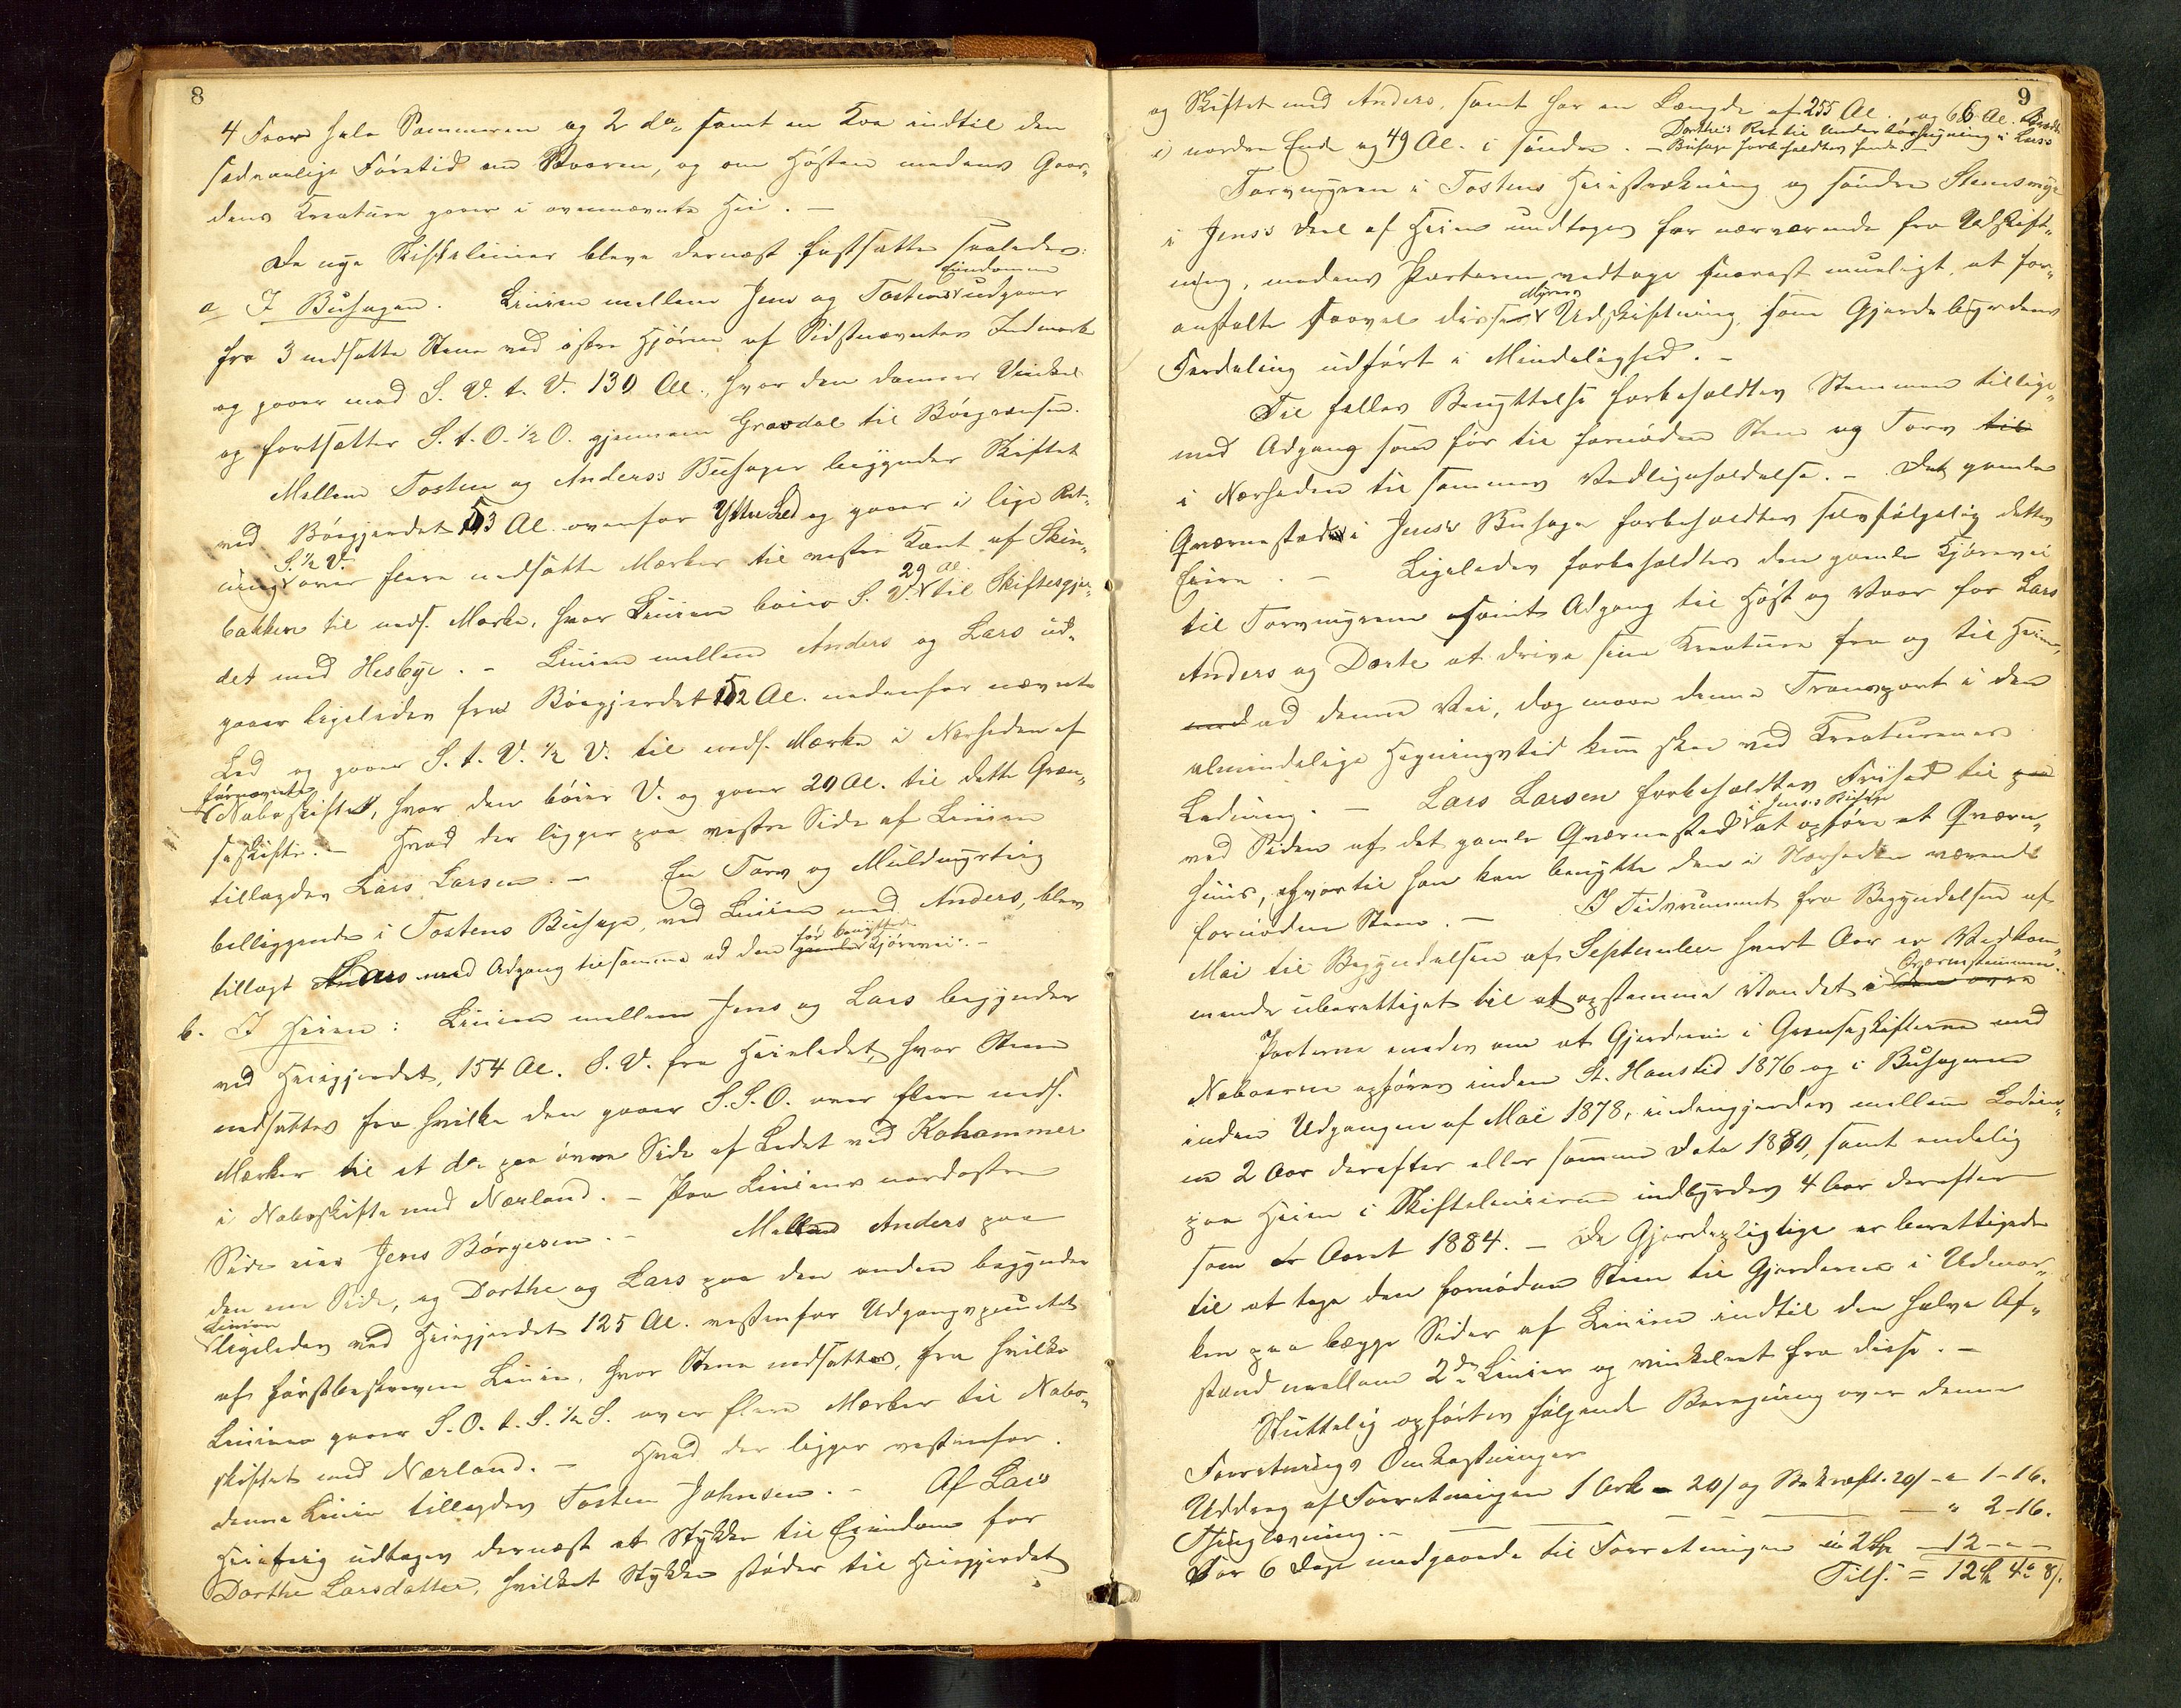 8
4 Faar hele Sommeren og 2 do samt en Koe indtil den
sædvanlige Føretid om Vaaren, og om Høsten medens Gaar-
dens Kreature gaar i ovennævnte Hei. –
De nye Skiftelinier bleve dernæst fastsatte saaledes:
a I Buhagen. Linien mellem Jens og Tostens Eiendomme udgaaer
fra 3 nedsatte Stene ved østre Hjørne af Sidstnævntes Indmark
og gaaer mod S. V. t. V. 130 Al., hvor den danner Vinkel
og fortsætter S. t. O. ½ O. gjennem Gravdal til Bøegrænsen.
Mellem Tosten og Anders's Buhager begynder Skiftet
ved Bøegjerdet 53 Al. ovenfor Ytre Led og gaaer i lige Ret-
ning S. ½ V. over flere nedsatte Mærker til vestre Kant af Skin-
bakken til neds. Mærke, hvor Linien bøier S. V. 29 Al. til Skiftesgjer-
det med Hesbye. – Linien mellem Anders og Lars ud-
gaaer ligeledes fra Bøegjerdet 152 Al. nedenfor nævnte
Led og gaaer S. t. V. ½ V. til neds. Mærke i Nærheden af
førnævnte Naboskifte, hvor den bøier V. og gaaer 20 Al. til dette Græn-
seskifte. – Hvad der ligger paa vestre Side af Linien
tillagdes Lars Larsen. – En Torv og Muldmyrteig
beliggende i Tostens Buhage, ved Linien med Anders, blev
tillagt Lars med Adgang til samme ad den før benyttede gamle Kjørevei. –
b. I Heien: Linien mellem Jens og Lars begynder
ved Heiegjerdet, 154 Al. S. V. fra Heieledet, hvor Stene
nedsattes fra hvilke den gaaer S.S.O. over flere neds.
Mærker til et do paa øvre Side af Ledet ved Kohammer
i Naboskifte med Nærland. – Paa Liniens nordøstre
Side eier Jens Børgesen. – Mellem Anders paa
den ene Side, og Dorthe og Lars paa den anden begynder
Linien ligeledes ved Heiegjerdet 125 Al. vestenfor Udgangspunctet
af førstbeskrevne Linie, hvor Stene nedsattes, fra hvilke
Linien gaaer S. O. t. S. ½ S. over flere Mærker til Nabo-
skiftet med Nærland. – Hvad der ligger vestenfor
denne Linie tillagdes Tosten Johnsen. – Af Lars
Heieteig udtages dernæst et Stykke til Eiendom for
Dorthe Larsdatter, hvilket Stykke støder til Heiegjerdet
9
og Skiftet med Anders, samt har en Længde af 255 Al., og 66 Al. Bredde
i nordre Ende og 49 Al. i søndre. – Dorthe's Ret til Underhavning i Lars's
Buhage forbeholdtes hende. –
Torvmyren i Tostens Heiestrækning og søndre Stemsmyr
i Jens's Deel af Heien undtages for nærværende fra Udskift-
ning, medens Parterne vedtage snarest mueligt, at for-
anstalte saavel disse Myrers Udskiftning, som Gjerdebyrdens
Fordeling udført i Mindelighed. –
Til fælles Benyttelse forbeholdtes Stemmen tillige-
med Adgang som før til fornøden Sten og Torv til
i Nærheden til sammes Vedligeholdelse. – Det gamle
Qværnested i Jens's Buhage forbeholdtes selvfølgelig dettes
Eiere. – Ligeledes forbeholdtes den gamle Kjørevei
til Torvmyrene samt Adgang til Høst og Vaar for Lars
Anders og Dorte at drive sine Kreature fra og til Heien,
ad denne Vei, dog maa denne Transport i den
almindelige Hegningstid kun skee ved Kreaturenes
Ledning. – Lars Larsen forbeholdtes Frihed til paa
ved Siden af det gamle Qværnested i Jens's Buhage at opføre et Qværn-
huus, hvortil han kan benytte den i Nærheden værende
fornødne Steen. – I Tidsrummet fra Begyndelsen af
Mai til Begyndelsen af September hvert Aar er Vedkom-
mende uberettiget til at opstemme Vandet i den øvre Qværnstemmen.
Parterne enedes om at Gjerderne i Grænseskifterne med
Naboerne opføres inden St. Hanstid 1876 og i Buhagerne
inden Udgangen af Mai 1878, udengjerdes mellem
en 2 Aar derefter eller samme Dato 1880, samt endelig
paa Heien i Skiftelinierne indbyrdes 4 Aar derefter
som er Aaret 1884. – De Gjerdepligtige er berettigede
til at tage den fornødne Sten til Gjerderne i Udmar-
ken paa begge Sider af Linien indtil den halve Af-
stand mellem 2de Linier og vinkelret fra disse. –
Sluttelig opførtes følgende Beregning over denne
Forretnings Omkostninger
Uddrag af Forretningen 1 Ark – 20/ og Bekræft. 20/ – " 1-16.
Thinglæsning. – – – – – – " 2-16.
For 6 Dage medgaaede til Forretningen à 2 Sp – 12 - " -
Tils. = 12 Sp 4 " 8/.